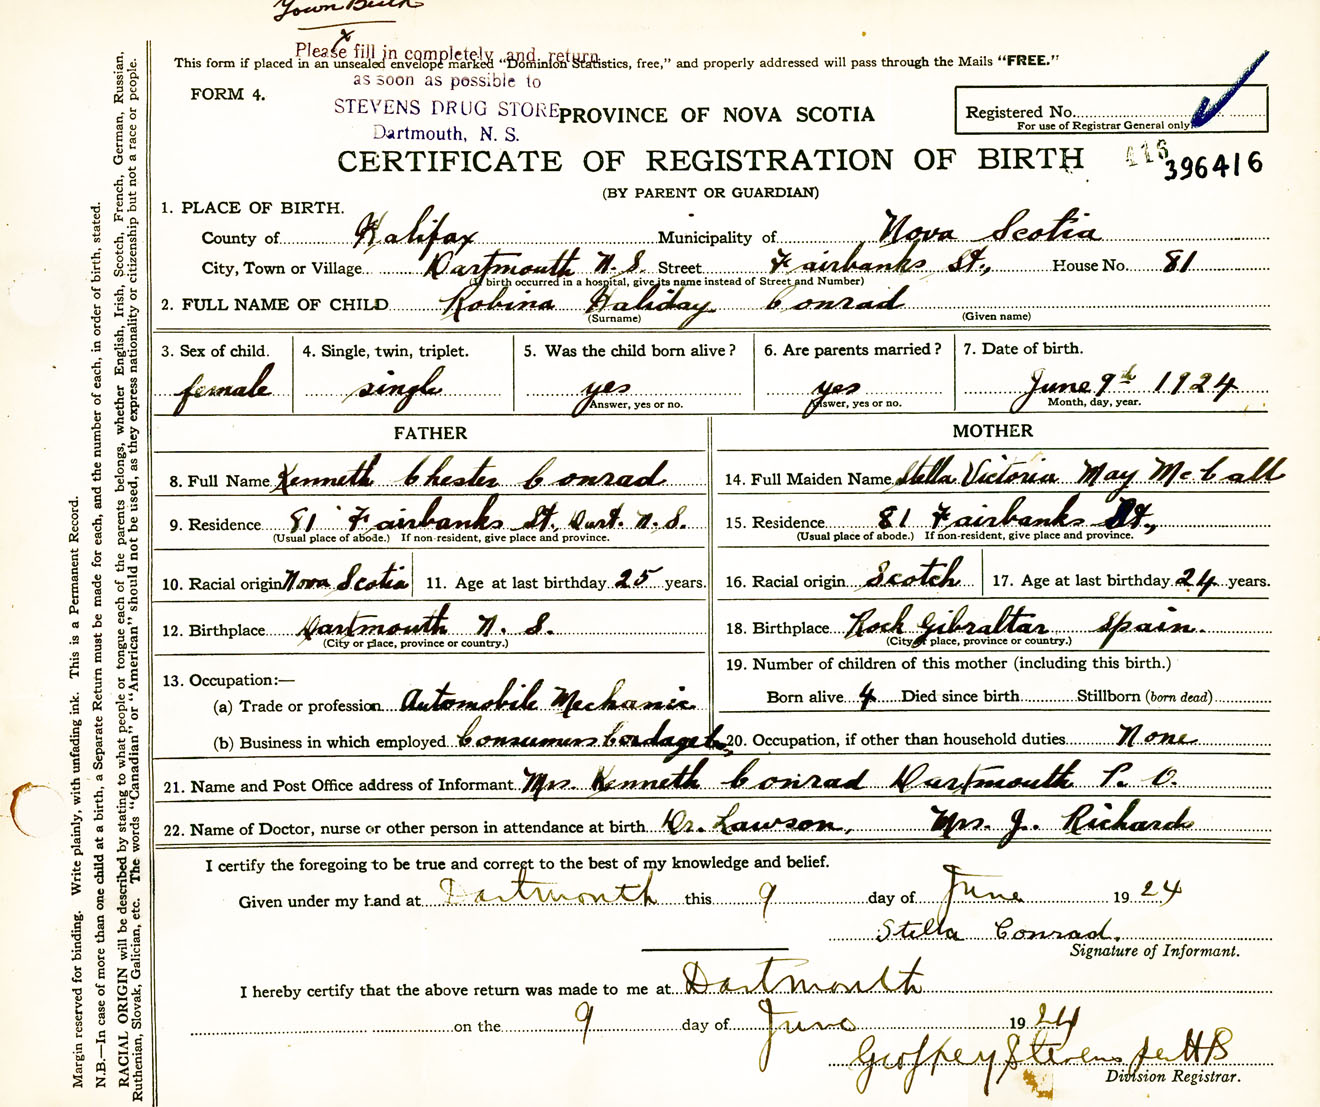 Town Birth
x
Please fill in completely and return
This form if placed in an unsealed envelope marked "Dominion Statistics, free," and properly addressed will pass through the Mails "FREE."
as soon as possible to
FORM 4.
STEVENS DRUG STORE
PROVINCE OF NOVA SCOTIA
Registered No.
For use of Registrar General only
Dartmouth, N. S.
CERTIFICATE OF REGISTRATION OF BIRTH
416
396416
(BY PARENT OR GUARDIAN)
1. PLACE OF BIRTH.
County of Halifax Municipality of Nova Scotia
City, Town or Village Dartmouth N. S. Street Fairbanks St., House No. 81
(If birth occurred in a hospital, give its name instead of Street and Number)
2. FULL NAME OF CHILD Robina Haliday Conrad
(Surname) (Given name)
3. Sex of child. 4. Single, twin, triplet. 5. Was the child born alive? 6. Are parents married? 7. Date of birth.
female single yes yes June 9th 1924
Answer, yes or no. Answer, yes or no. Month, day, year.
FATHER MOTHER
8. Full Name Kenneth Chester Conrad 14. Full Maiden Name Stella Victoria May McCall
9. Residence 81 Fairbanks St., Dart. N. S. 15. Residence 81 Fairbanks St.,
(Usual place of abode.) If non-resident, give place and province. (Usual place of abode.) If non-resident, give place and province.
10. Racial origin Nova Scotia 11. Age at last birthday 25 years. 16. Racial origin Scotch 17. Age at last birthday 24 years.
12. Birthplace Dartmouth N. S. 18. Birthplace Rock Gibraltar Spain.
(City or place, province or country.) (City or place, province or country.)
13. Occupation:— 19. Number of children of this mother (including this birth.)
(a) Trade or profession Automobile Mechanic Born alive 4 Died since birth Stillborn (born dead)
(b) Business in which employed Consumers Cordage 20. Occupation, if other than household duties None
21. Name and Post Office address of Informant Mrs. Kenneth Conrad Dartmouth P. O.
22. Name of Doctor, nurse or other person in attendance at birth Dr. Lawson, Mrs. J. Richards
I certify the foregoing to be true and correct to the best of my knowledge and belief.
Given under my hand at Dartmouth this 9 day of June 1924
Stella Conrad.
Signature of Informant.
I hereby certify that the above return was made to me at Dartmouth
on the 9 day of June 1924
Geoffrey Stevens per HB
Division Registrar.
Margin reserved for binding. Write plainly, with unfading ink. This is a Permanent Record.
N.B.—In case of more than one child at a birth, a Separate Return must be made for each, and the number of each, in order of birth, stated.
RACIAL ORIGIN will be described by stating to what people or tongue each of the parents belongs, whether English, Irish, Scotch, French, German, Russian,
Ruthenian, Slovak, Galician, etc. The words "Canadian" or "American" should not be used, as they express nationality or citizenship but not a race or people.